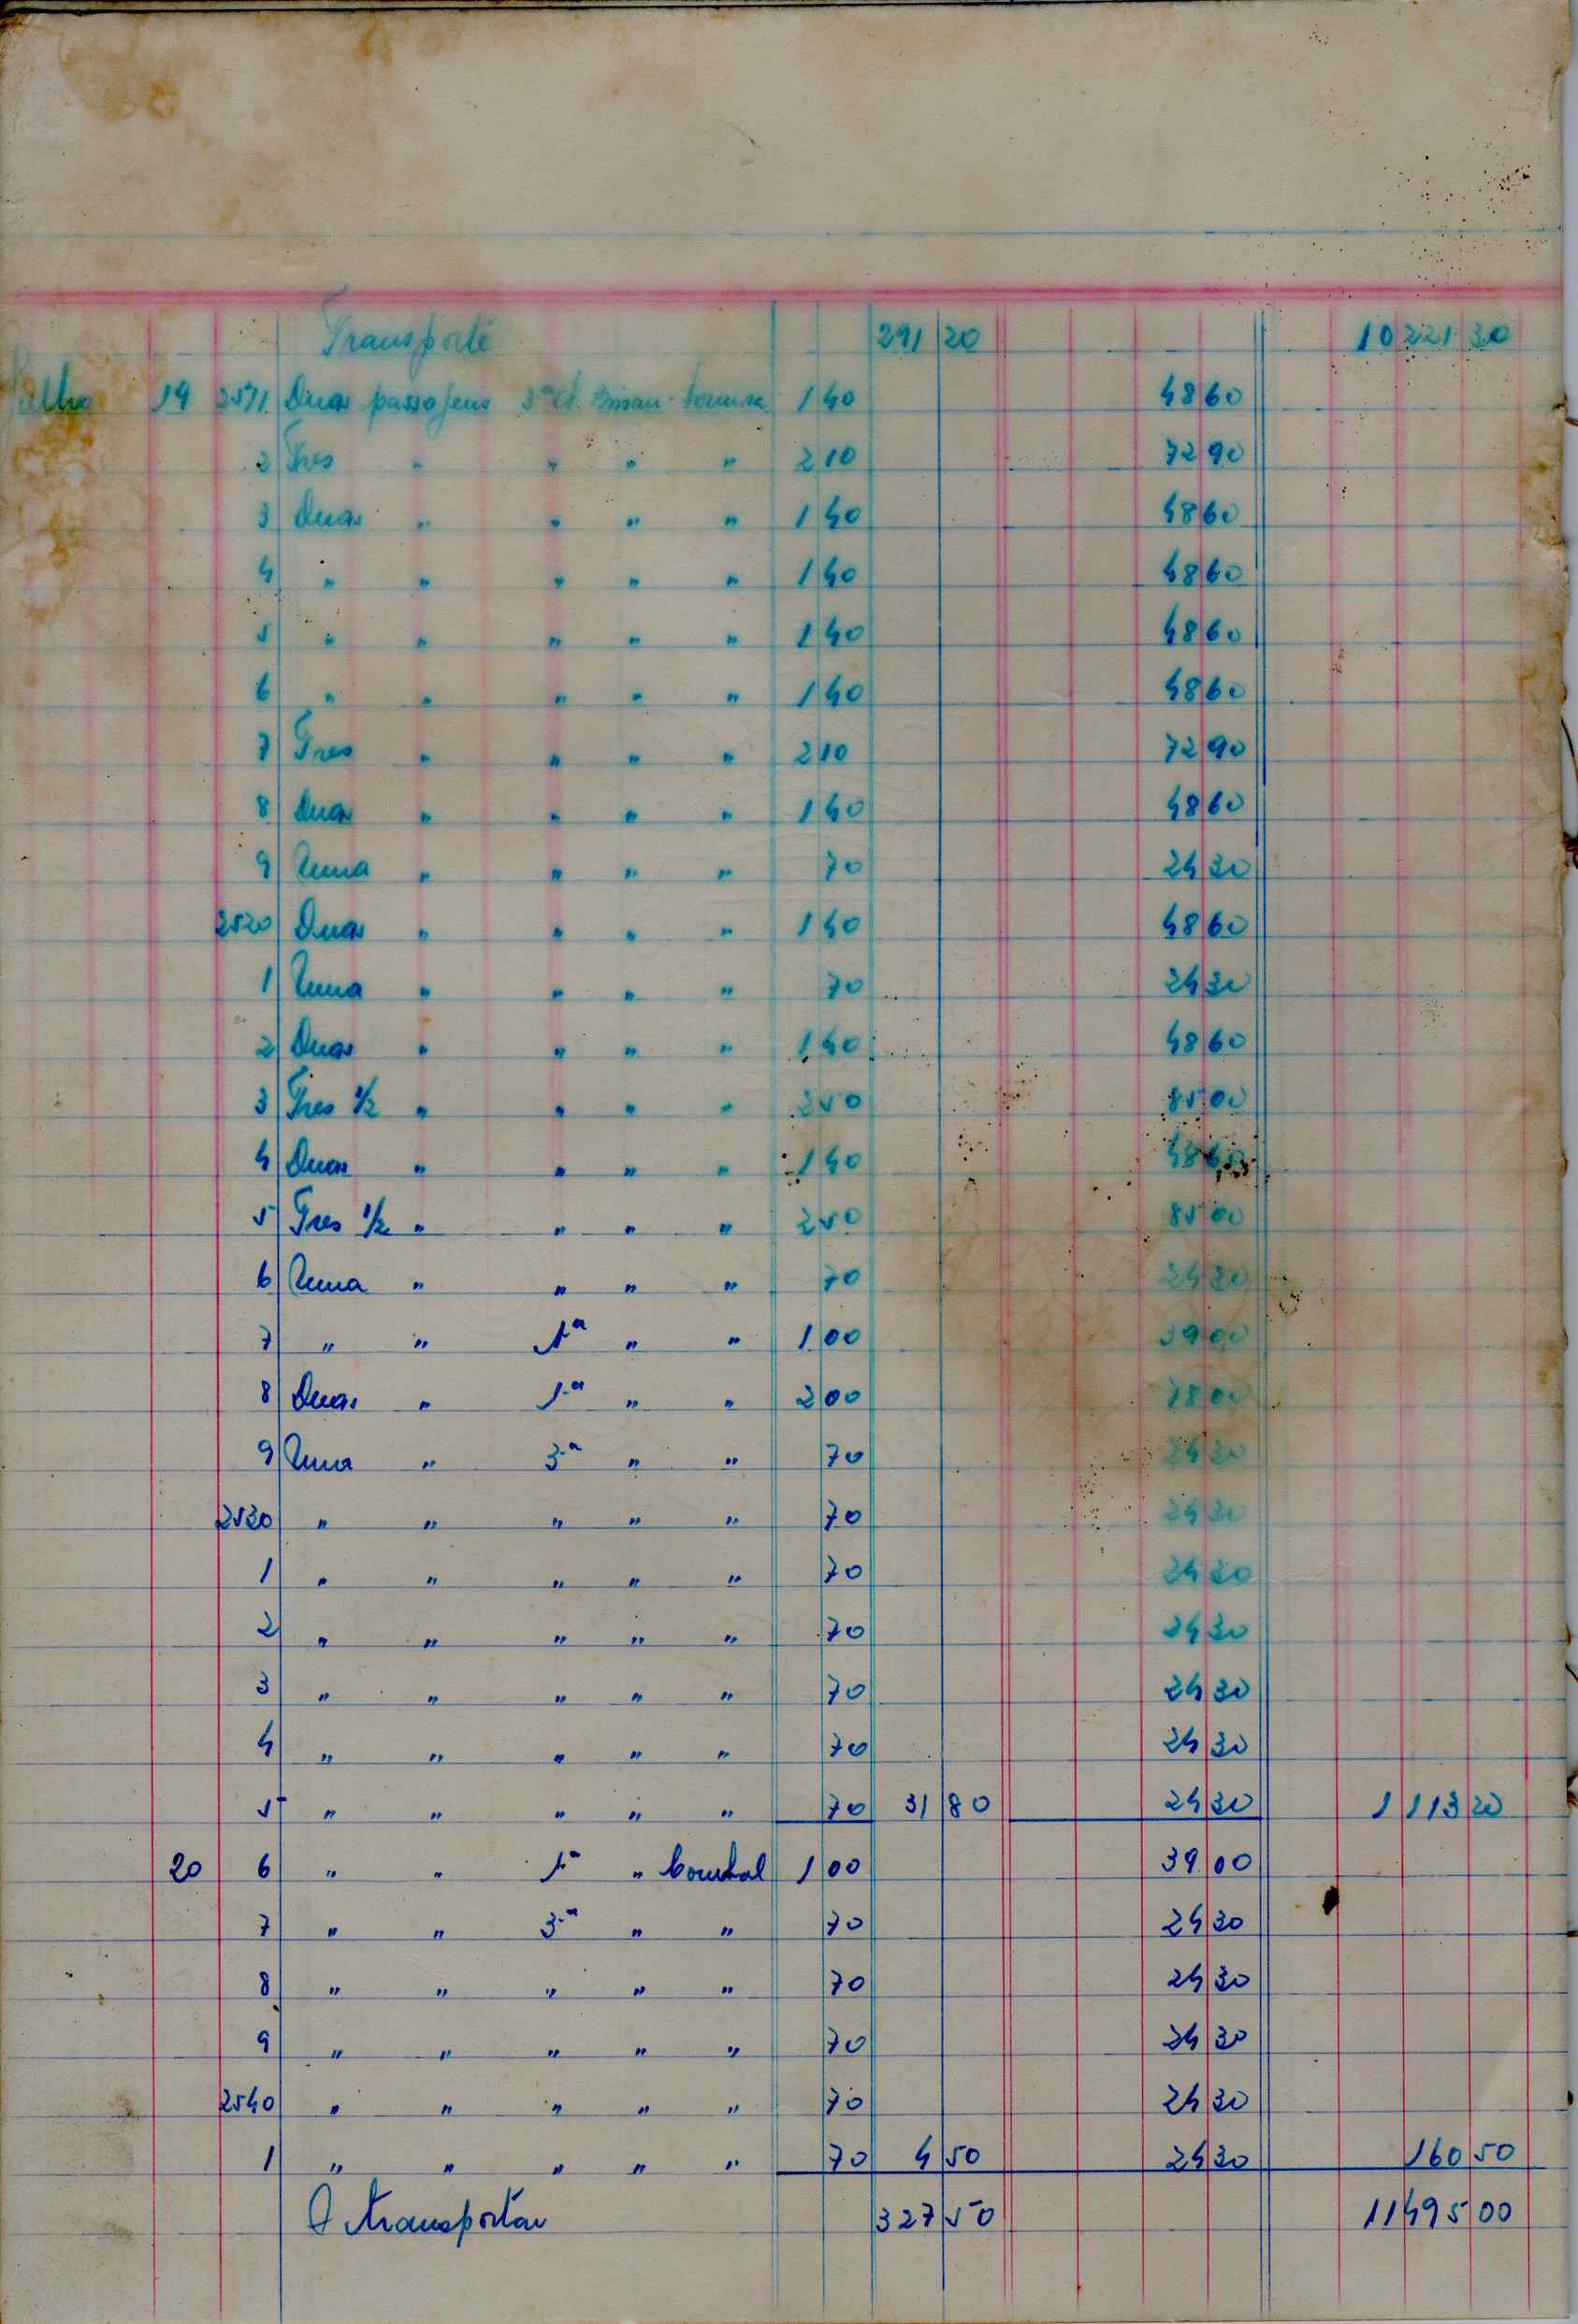 Transporte 291 20 10 221 30
Julho 19 2511 Duas passagens 3ª cl. Bissau 1 40 48 60
2 Tres " " " " 2 10 72 90
3 Duas " " " " 1 40 48 60
4 " " " " " 1 40 48 60
5 " " " " " 1 40 48 60
6 " " " " " 1 40 48 60
7 Tres " " " " 2 10 72 90
8 Duas " " " " 1 40 48 60
9 Uma " " " " 70 24 30
2520 Duas " " " " 1 40 48 60
1 Uma " " " " 70 24 30
2 Duas " " " " 1 40 48 60
3 Tres 1/2 " " " " 2 50 85 00
4 Duas " " " " 1 40 48 60
5 Tres 1/2 " " " " 2 50 85 00
6 Uma " " " " 70 24 30
7 " " 1ª " " 1 00 39 00
8 Duas " 1ª " " 2 00 78 00
9 Uma " 3ª " " 70 24 30
2530 " " " " " 70 24 30
1 " " " " " 70 24 30
2 " " " " " 70 24 30
3 " " " " " 70 24 30
4 " " " " " 70 24 30
5 " " " " " 70 31 80 24 30 1 113 20
20 6 " " 1ª " 1 00 39 00
7 " " 3ª " " 70 24 30
8 " " " " " 70 24 30
9 " " " " " 70 24 30
2540 " " " " " 70 24 30
1 " " " " " 70 4 50 24 30 160 50
A transportar 327 50 11 495 00